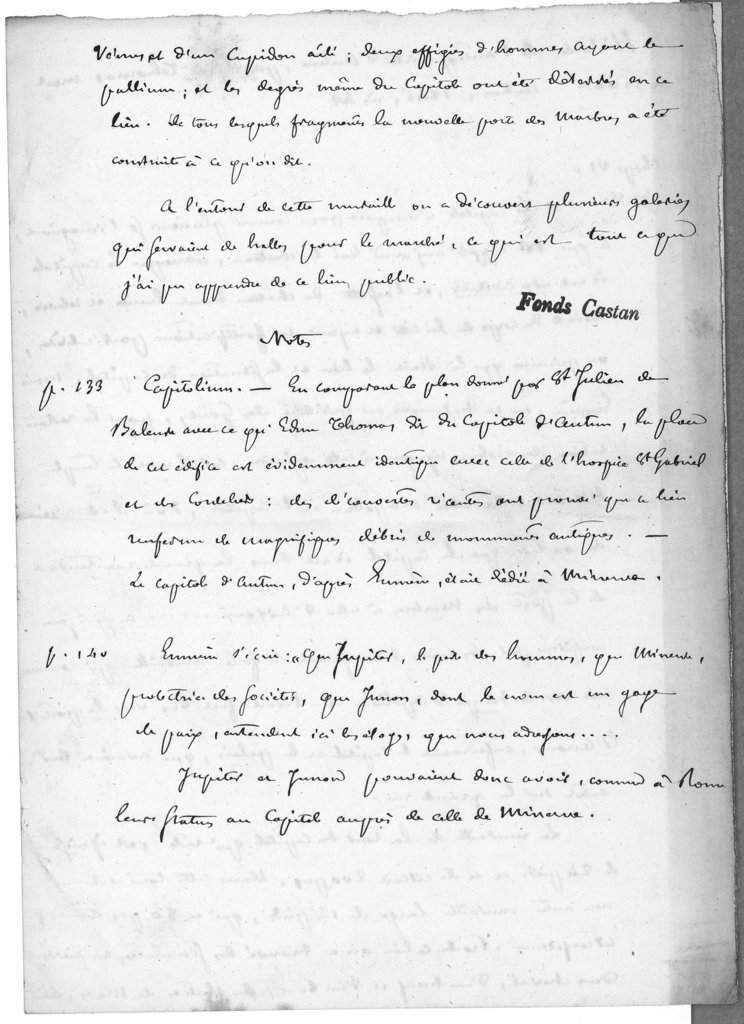 Vénus et d'un Cupidon ailé ; deux effigies d'hommes ayant le
pallium ; et les degrés même du Capitole ont été déterrés en ce
lieu. De tous lesquels fragments la nouvelle porte des Marbres a été
construite à ce qu'on dit.
A l'entour de cette muraille on a découvert plusieurs galeries
qui servaient de halles pour le marché, ce qui est tout ce que
j'ai pu apprendre de ce lieu public.
Fonds Castan
Notes
p. 133 Capitolium. — En comparant le plan donné par St Julien de
Baleure avec ce qu'Edme Thomas dit du Capitole d'Autun, la place
de cet édifice est évidemment identique avec celle de l'hospice St Gabriel
et des Cordeliers : des découvertes récentes ont prouvé que ce lieu
renferme de magnifiques débris de monuments antiques. —
Le capitole d'Autun, d'après Eumène, était dédié à Minerve.
p. 140 Eumène s'écrie : « Que Jupiter, le père des hommes, que Minerve,
protectrice des Sociétés, que Junon, dont le nom est un gage
de paix, entendent ici les éloges que nous adressons....
Jupiter et Junon pouvaient donc avoir, comme à Rome
leurs statues au Capitole auprès de celle de Minerve.